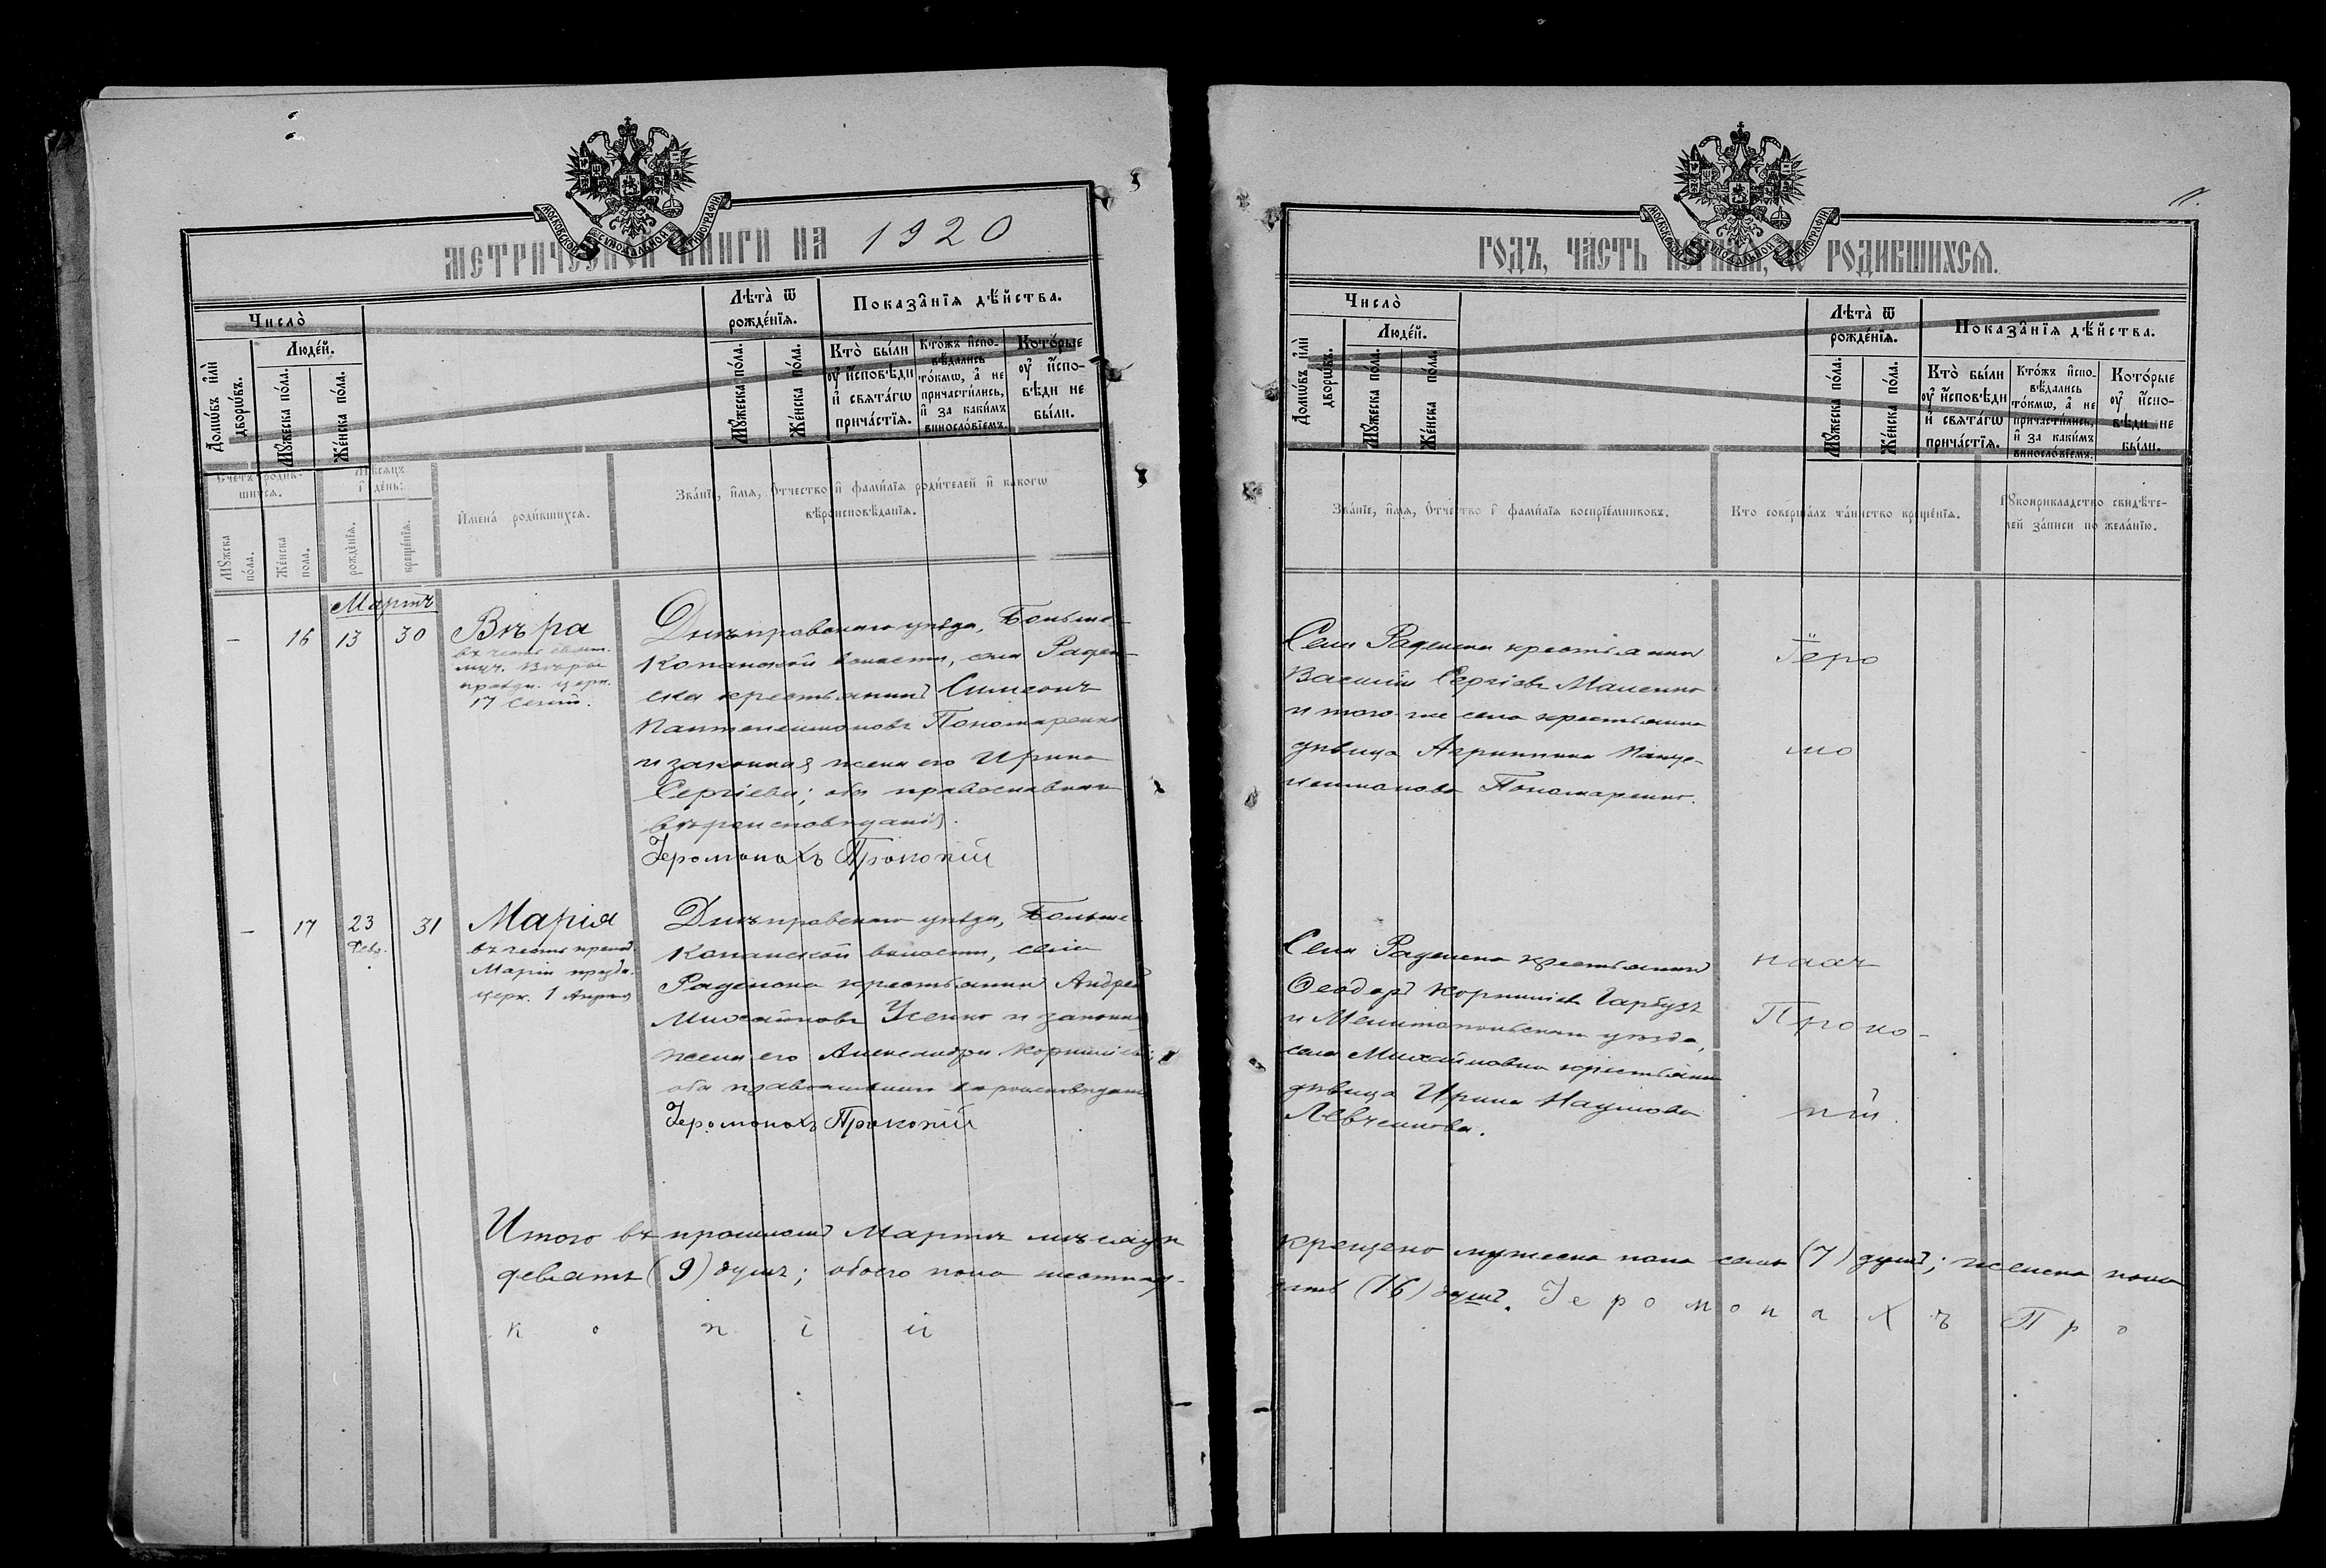 МОСКОВСКОЙ СѴНОДАЛЬНОЙ ТИПОГРАФІИ
МЕТРИЧЕСКОЙ КНИГИ НА 1920
Число̀
Людє́й.
Домѡ́въ и҆лѝ дворѡ́въ.
Мꙋ́жеска по́ла.
Же́нска по́ла.
Лѣта̀ ѿ рожде́нїѧ.
Мꙋ́жеска по́ла.
Же́нска по́ла.
Показа̑нїѧ дѣ́йства.
Кто̀ бы́ли ᲂу҆ и҆́сповѣди и҆ свѧта́гѡ прича́стїѧ.
Кто́жъ и҆спо-
вѣ́дались
то́кмѡ, а҆ не
причасти́лись,
и҆ за каки́мъ
винослові́емъ.
Кото́рые
ᲂу҆ и҆́спо-
вѣди не
бы́ли.
Сче́тъ роди́в-
шихсѧ.
Мѣ́сѧцъ
и҆ де́нь:
Мꙋ́жеска по́ла.
Же́нска по́ла.
рожде́нїѧ.
креще́нїѧ.
И҆мена̀ роди́вшихсѧ.
Зва́нїе, и҆́мѧ, ѻ҆́тчество и҆ фами́лїѧ роди́телей и҆ како́гѡ
вѣроисповѣ́данїѧ.
Мартъ
— 16 13 30 Вѣра
въ честь свят.
муч. Вѣры
праздн. церк.
17 Сент.
Днѣпровскаго уѣзда, Больше-
Копанской волости, села Раден-
ска крестьянинъ Симеонъ
Пантелеимоновъ Пономаренко
и законная жена его Ирина
Сергіева; оба православнаго
вѣроисповѣданія.
Іеромонахъ Прокопій
— 17 23 Февр. 31 Марія
въ честь препод.
Маріи праздн.
церк. 1 Апрѣля
Днѣпровскаго уѣзда, Больше-
Копанской волости, села
Раденска крестьянинъ Андрей
Михайловъ Усенко и законная
жена его Александра Корниліева;
оба православнаго вѣроисповѣданія
Іеромонахъ Прокопій
Итого въ прошломъ Мартѣ мѣсяцѣ
девять (9) душъ; обоего пола шестнад-
к о п і й
11.
МОСКОВСКОЙ СѴНОДАЛЬНОЙ ТИПОГРАФІИ
ГОДЪ, ЧАСТЬ ПЕРВАѦ, Ѡ РОДИВШИХСѦ.
Число̀
Людє́й.
Домѡ́въ и҆лѝ дворѡ́въ.
Мꙋ́жеска по́ла.
Же́нска по́ла.
Лѣта̀ ѿ рожде́нїѧ.
Мꙋ́жеска по́ла.
Же́нска по́ла.
Показа̑нїѧ дѣ́йства.
Кто̀ бы́ли ᲂу҆ и҆́сповѣди и҆ свѧта́гѡ прича́стїѧ.
Кто́жъ и҆спо-
вѣ́дались
то́кмѡ, а҆ не
причасти́лись,
и҆ за каки́мъ
винослові́емъ.
Кото́рые
ᲂу҆ и҆́спо-
вѣди не
бы́ли.
Зва́нїе, и҆́мѧ, ѻ҆́тчество и҆ фами́лїѧ воспрїе́мниковъ.
Кто соверша́лъ та́инство креще́нїѧ.
Рꙋкоприкла́дство свидѣ́те-
лей за́писи по жела́нїю.
Села Раденска крестьянинъ
Василій Сергіевъ Маленко
и того-же села крестьянка
дѣвица Агрипина Панте-
леимонова Пономаренко.
Села Раденска крестьянинъ
Ѳеодоръ Корниліевъ Гарбузъ
и Мелитопольскаго уѣзда,
села Михайловки крестьянка
дѣвица Ирина Наумова
Левченкова.
Іеро
мо
нахъ
Проко-
пій.
крещено мужеска пола семь (7) душъ; женска пола
цать (16) душъ. І е р о м о н а х ъ П р о